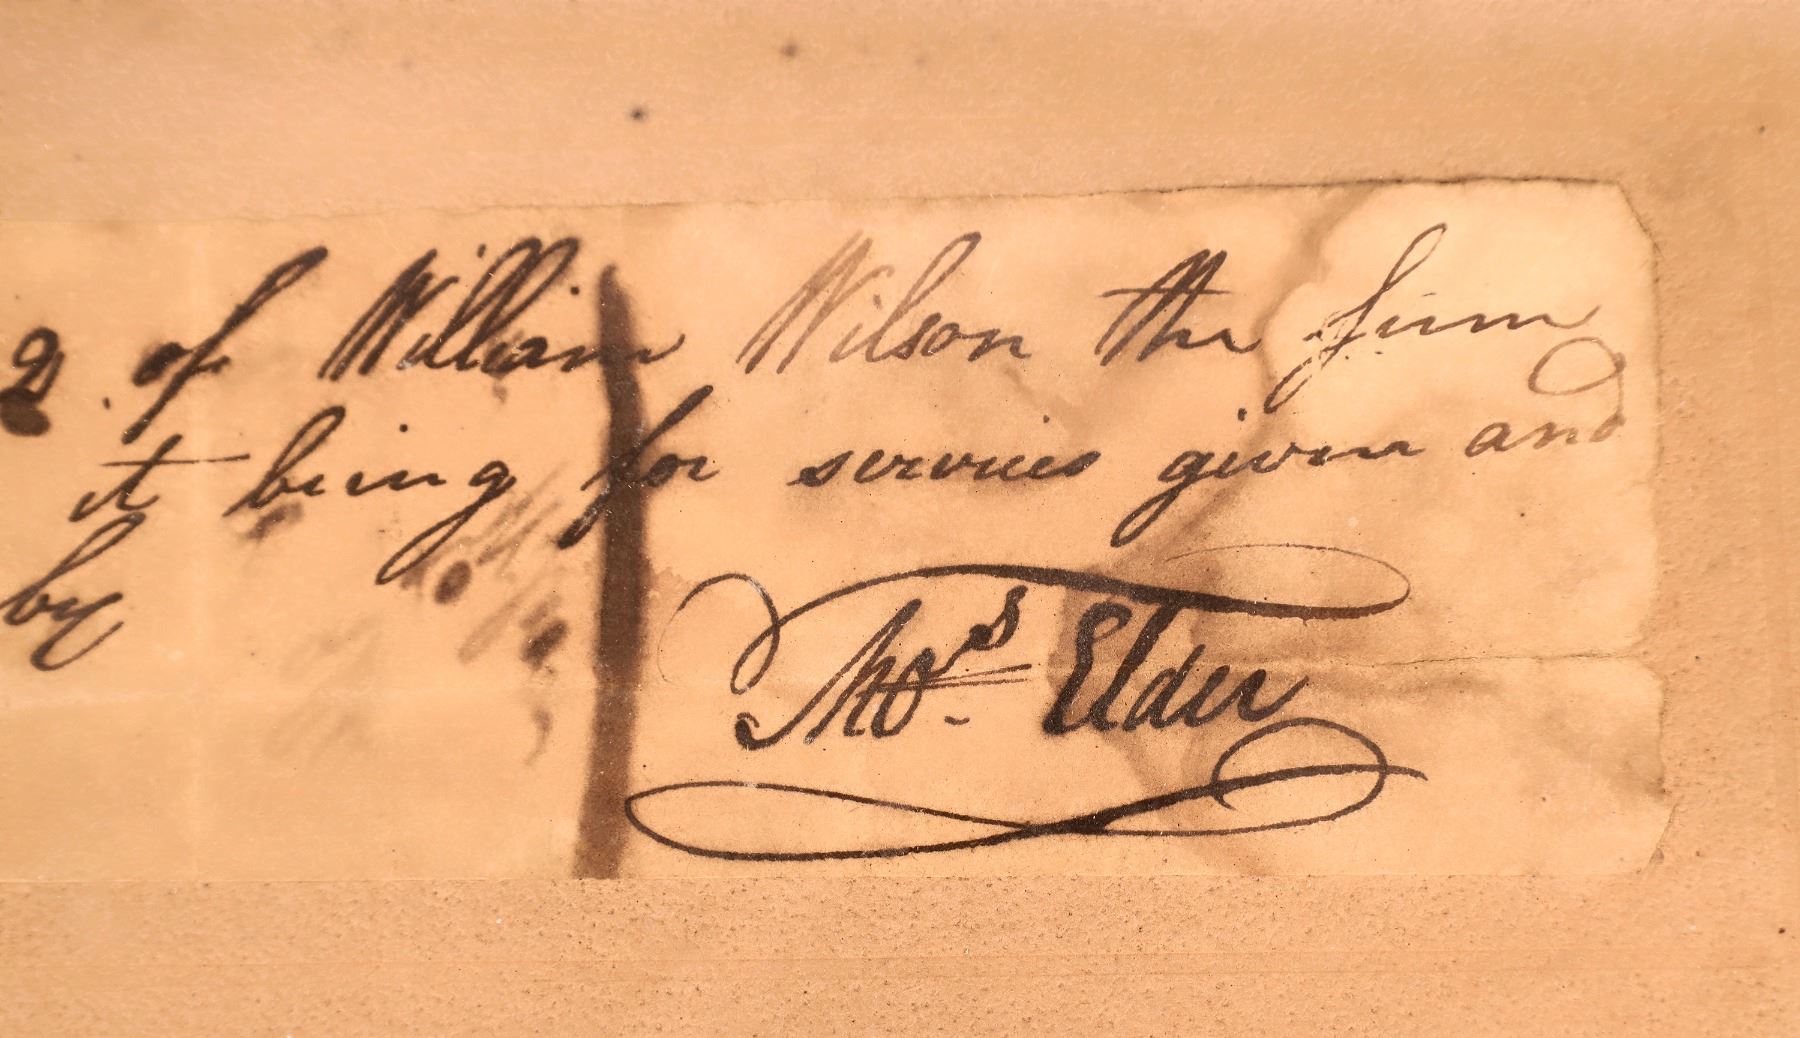 of William Wilson the sum
it being for services given and
by
Thos Elder